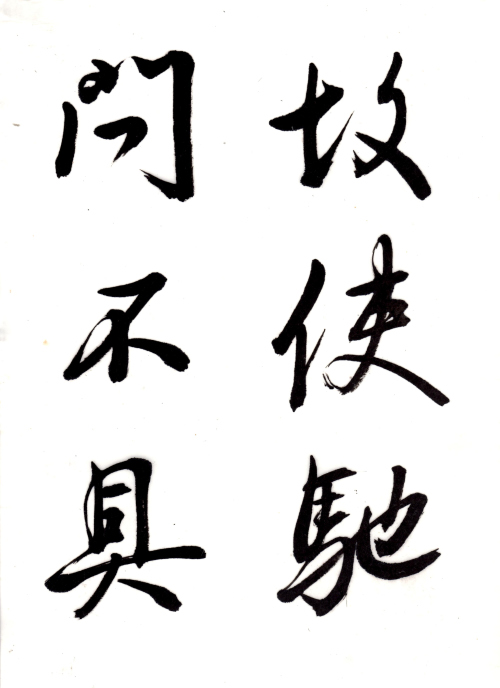 故使馳
問不具